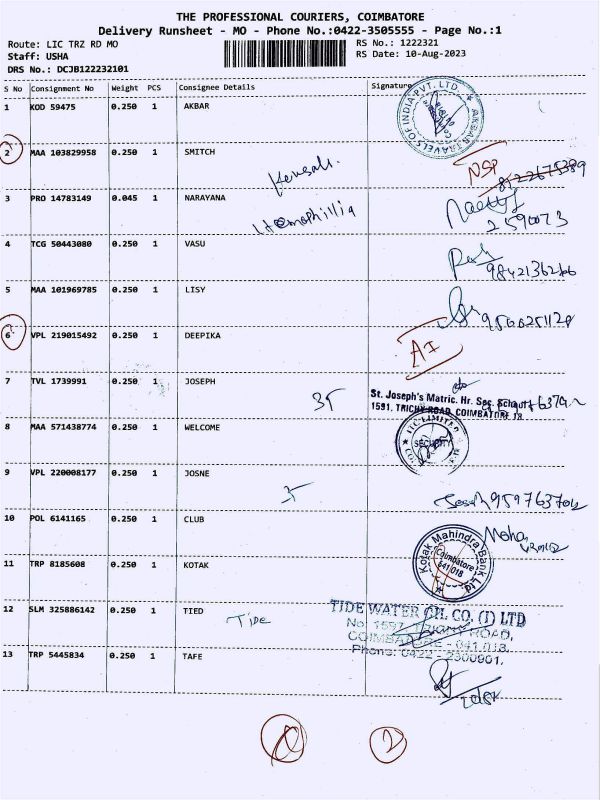 THE PROFESSIONAL COURIERS, COIMBATORE
Delivery Runsheet - MO - Phone No.:0422-3505555 - Page No.:1
Route: LIC TRZ RD MO
RS No.: 1222321
Staff: USHA
RS Date: 10-Aug-2023
DRS No.: DCJB122232101
S No Consignment No Weight PCS Consignee Details Signature
1 KOD 59475 0.250 1 AKBAR
AKBAR TRAVELS OF INDIA PVT. LTD.
2 MAA 103829958 0.250 1 SMITCH
NSP
3 PRO 14783149 0.045 1 NARAYANA
Haemophillia
2590073
4 TCG 50443080 0.250 1 VASU
5 MAA 101969785 0.250 1 LISY
6 VPL 219015492 0.250 1 DEEPIKA
AI
7 TVL 1739991 0.250 1 JOSEPH
35
St. Joseph's Matric. Hr. Sec. School
1591, TRICHY ROAD, COIMBATORE 18
8 MAA 571438774 0.250 1 WELCOME
ITC LIMITED
SECURITY
9 VPL 220008177 0.250 1 JOSNE
10 POL 6141165 0.250 1 CLUB
Mohan
11 TRP 8185608 0.250 1 KOTAK
Kotak Mahindra Bank Ltd
Coimbatore
641 018
12 SLM 325886142 0.250 1 TIED
Tide
TIDE WATER OIL CO. (I) LTD
No. 1597, TRICHY ROAD,
COIMBATORE - 641 018.
Phone: 0422 - 2300901.
13 TRP 5445834 0.250 1 TAFE
2